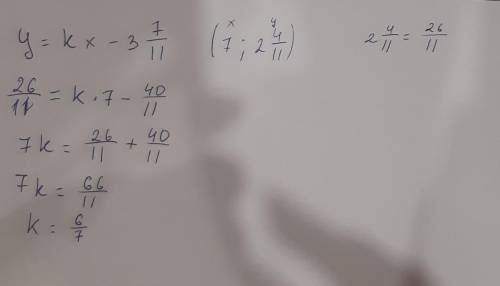 y = kx - 3 7/11 (7 ; 2 4/11) 2 4/11 = 26/11
x y
26/11 = k · 7 - 40/11
7k = 26/11 + 40/11
7k = 66/11
k = 6/7